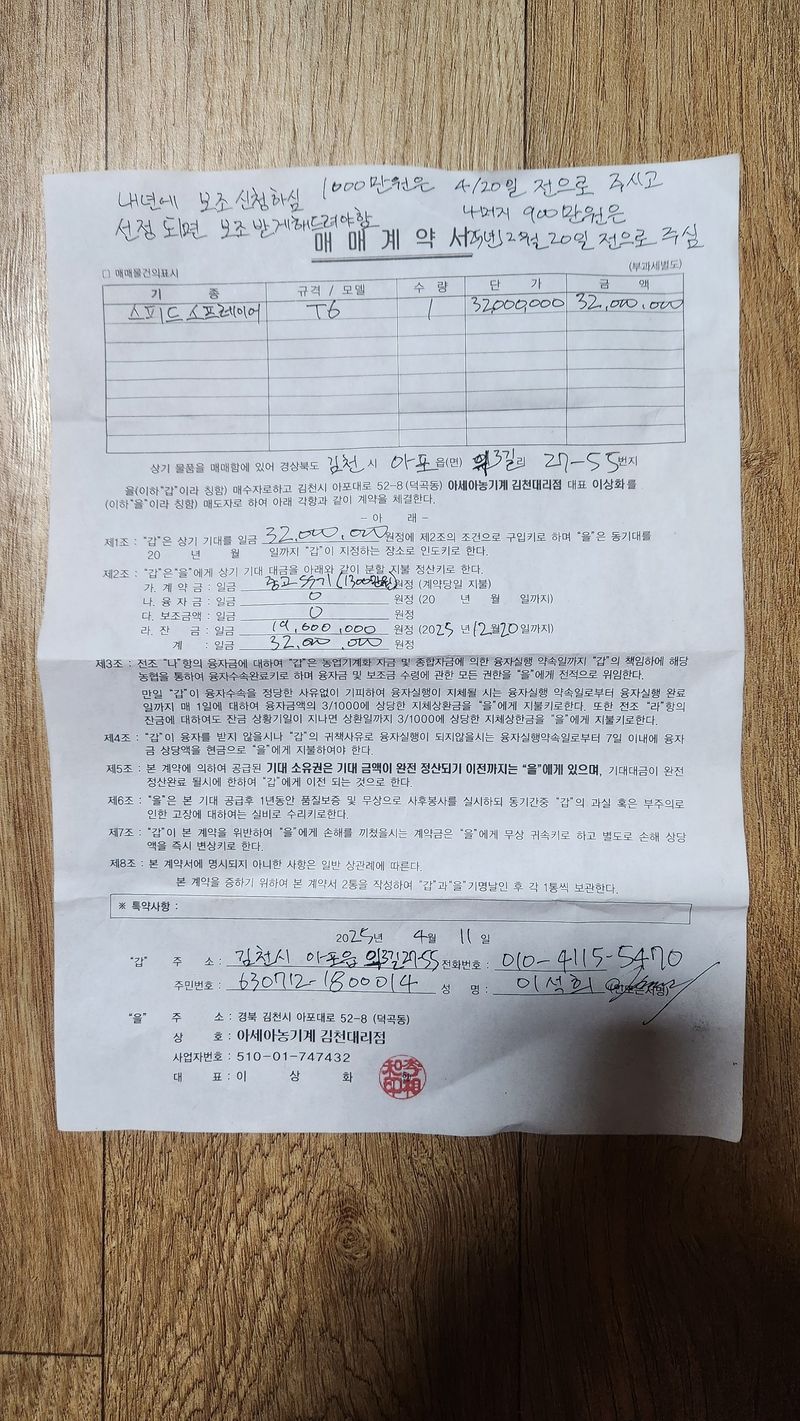 내년에 보조신청하심 1000만원은 4/20일 전으로 주시고
선정되면 보조받게해드려야함 나머지 900만원은
매매계약서 12월20일 전으로 주심
□ 매매물건의표시 (부과세별도)
기 종 규격 / 모델 수 량 단 가 금 액
스피드스프레이어 T6 1 32,000,000 32,000,000
상기 물품을 매매함에 있어 경상북도 김천시 아포읍(면) 의3길리 27-55번지
을(이하"갑"이라 칭함) 매수자로하고 김천시 아포대로 52-8(덕곡동) 아세아농기계 김천대리점 대표 이상화를
(이하"을"이라 칭함) 매도자로 하여 아래 각항과 같이 계약을 체결한다.
- 아 래 -
제1조 : "갑"은 상기 기대를 일금 32,000,000원정에 제2조의 조건으로 구입키로 하며 "을"은 동기대를
20 년 월 일까지 "갑"이 지정하는 장소로 인도키로 한다.
제2조 : "갑"은"을"에게 상기 기대 대금을 아래와 같이 분할 지불 정산키로 한다.
가. 계 약 금 : 일금 중고SS기(1300만원)원정 (계약당일 지불)
나. 융 자 금 : 일금 0 원정 (20 년 월 일까지)
다. 보조금액 : 일금 0 원정
라. 잔 금 : 일금 19,000,000 원정 (2025년 12월 20일까지)
계 : 일금 32,000,000 원정
제3조 : 전조 "나"항의 융자금에 대하여 "갑"은 농업기계화 자금 및 종합자금에 의한 융자실행 약속일까지 "갑"의 책임하에 해당
농협을 통하여 융자수속완료키로 하며 융자금 및 보조금 수령에 관한 모든 권한을 "을"에게 전적으로 위임한다.
만일 "갑"이 융자수속을 정당한 사유없이 기피하여 융자실행이 지체될 시는 융자실행 약속일로부터 융자실행 완료
일까지 매 1일에 대하여 융자금액의 3/1000에 상당한 지체상환금을 "을"에게 지불키로한다. 또한 전조 "라"항의
잔금에 대하여도 잔금 상황기일이 지나면 상환일까지 3/1000에 상당한 지체상한금을 "을"에게 지불키로한다.
제4조 : "갑"이 융자를 받지 않을시나 "갑"의 귀책사유로 융자실행이 되지않을시는 융자실행약속일로부터 7일 이내에 융자
금 상당액을 현금으로 "을"에게 지불하여야 한다.
제5조 : 본 계약에 의하여 공급된 기대 소유권은 기대 금액이 완전 정산되기 이전까지는 "을"에게 있으며, 기대대금이 완전
정산완료 될시에 한하여 "갑"에게 이전 되는 것으로 한다.
제6조 : "을"은 본 기대 공급후 1년동안 품질보증 및 무상으로 사후봉사를 실시하되 동기간중 "갑"의 과실 혹은 부주의로
인한 고장에 대하여는 실비로 수리키로한다.
제7조 : "갑"이 본 계약을 위반하여 "을"에게 손해를 끼쳤을시는 계약금은 "을"에게 무상 귀속키로 하고 별도로 손해 상당
액을 즉시 변상키로 한다.
제8조 : 본 계약서에 명시되지 아니한 사항은 일반 상관례에 따른다.
본 계약을 증하기 위하여 본 계약서 2통을 작성하여 "갑"과"을"기명날인 후 각 1통씩 보관한다.
※ 특약사항 :
2025년 4월 11일
"갑" 주 소 : 김천시 아포읍 의3길27-55 전화번호 : 010-4115-5470
주민번호 : 630712-1800014 성 명 : 이석희
"을" 주 소 : 경북 김천시 아포대로 52-8 (덕곡동)
상 호 : 아세아농기계 김천대리점
사업자번호 : 510-01-747432
대 표 : 이 상 화